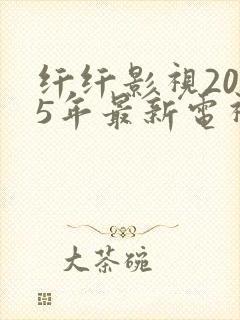 纤纤影視20
5年最新電視
大茶碗